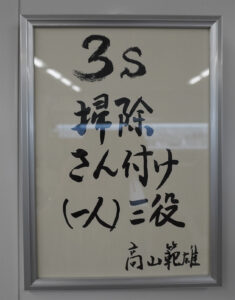 3S
掃除
さん付け
(一人)三役
高山範雄